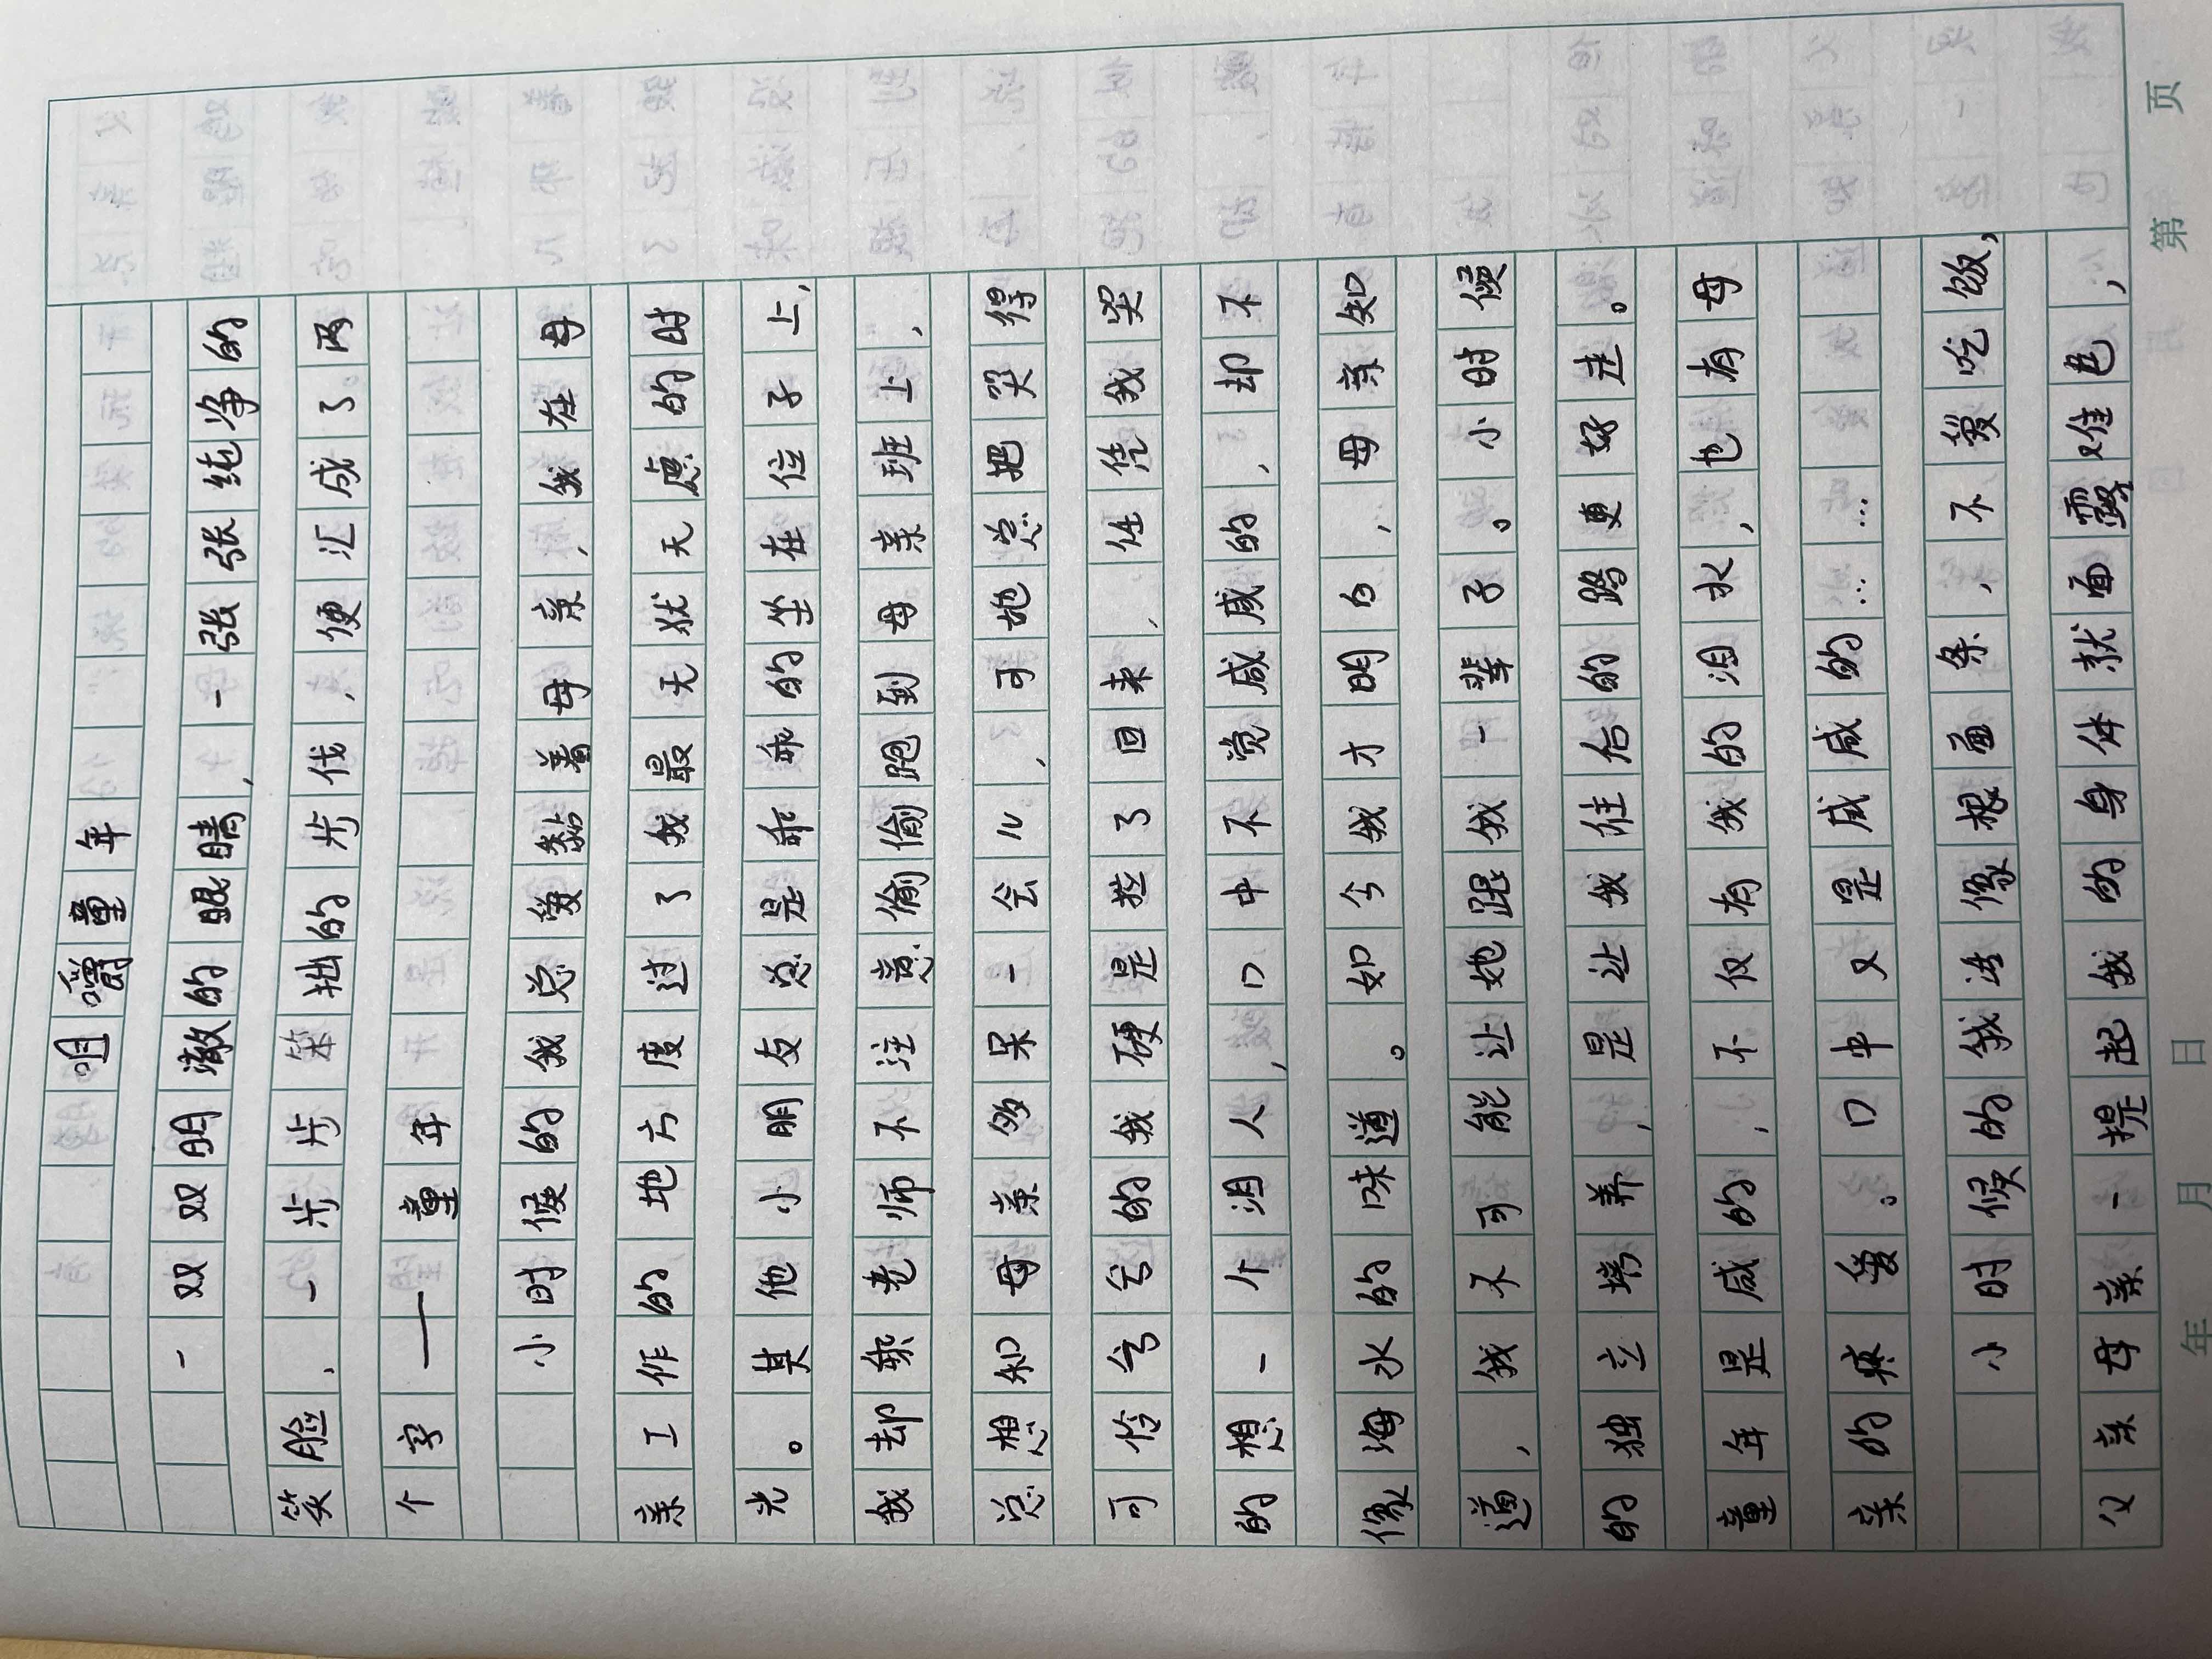 咀嚼童年
一双双明澈的眼睛，一张张纯净的
笑脸，一步步笨拙的步伐，便汇成了。两
个字——童年
小时候的我总爱黏着母亲，我在母
亲工作的地方度过了我最无犹无虑的时
光。其他小朋友总是乖乖的坐在位子上，
我却乘老师不注意偷偷跑到母亲班上，
总想和母亲多呆一会儿，可她总把哭得
可怜兮兮的我硬是拦了回来，任凭我哭
的想一个泪人，口中不觉咸咸的，却不
像海水的味道。如今我才明白，母亲知
道，我不可能让她跟我一辈子。小时候
的独立培养，是让我往后的路更好走。
童年是咸的，不仅有我的泪水，也有母
亲的疼爱。口中又是咸咸的……
小时候的我活像根面条，不爱吃饭，
父亲母亲一提起我的身体就面露难色，
年 月 日 第 页